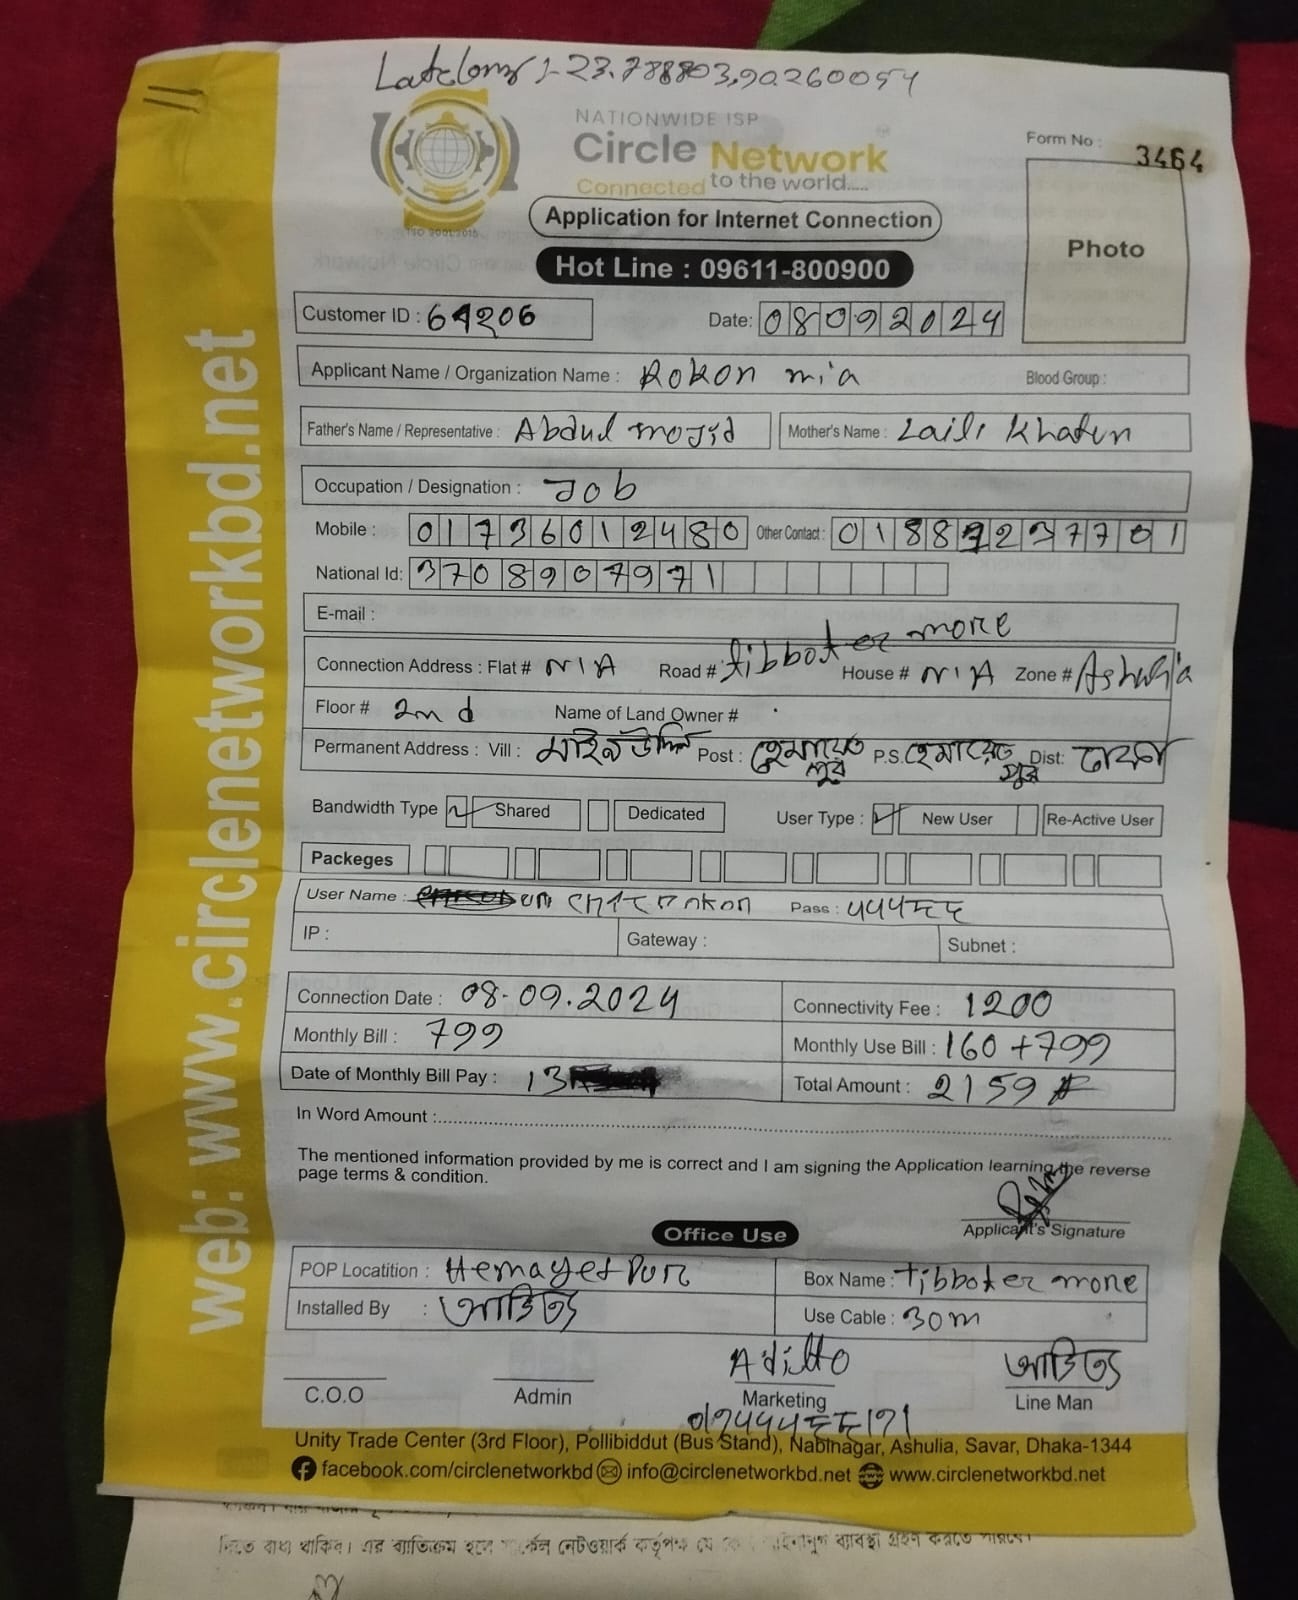 Lat&long:-23.788803,90.260054
NATIONWIDE ISP
Circle Network
Connected to the world.....
ISO 9001:2015
Form No : 3464
Application for Internet Connection
Photo
Hot Line : 09611-800900
Customer ID : 64206 Date: 08092024
Applicant Name / Organization Name : Rokon mia Blood Group :
Father's Name / Representative : Abdul mojid Mother's Name : Laili Khatun
Occupation / Designation : Job
Mobile : 01736012480 Other Contact : 01882237701
National Id: 3708907971
E-mail :
Connection Address : Flat # N/A Road # tibboter more House # N/A Zone # Ashulia
Floor # 2nd Name of Land Owner #
Permanent Address : Vill : মাইনউদ্দিন Post : হেমায়েতপুর P.S. হেমায়েতপুর Dist: ঢাকা
Bandwidth Type Shared Dedicated User Type : New User Re-Active User
Packeges
User Name : Pass : ५५५८८
IP : Gateway : Subnet :
Connection Date : 08-09.2024 Connectivity Fee : 1200
Monthly Bill : 799 Monthly Use Bill : 160+799
Date of Monthly Bill Pay : 13 Total Amount : 2159
In Word Amount :
The mentioned information provided by me is correct and I am signing the Application learning the reverse
page terms & condition.
Applicant's Signature
Office Use
POP Locatition : Hemayetpur Box Name : tibboter more
Installed By : আদিত্য Use Cable : 30m
Aditto আদিত্য
C.O.O Admin Marketing Line Man
Unity Trade Center (3rd Floor), Pollibiddut (Bus Stand), Nabinagar, Ashulia, Savar, Dhaka-1344
facebook.com/circlenetworkbd info@circlenetworkbd.net www.circlenetworkbd.net
web: www.circlenetworkbd.net
দিতে বাধ্য থাকিব। এর ব্যতিক্রম হলে সার্কেল নেটওয়ার্ক কর্তৃপক্ষ যে কোন আইনানুগ ব্যবস্থা গ্রহন করতে পারবে।